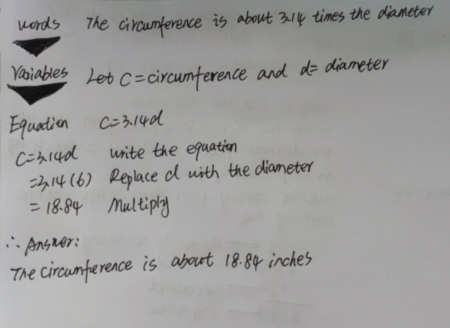 words The circumference is about 3.14 times the diameter
Variables Let C = circumference and d = diameter
Equation C=3.14d
C=3.14d write the equation
=3.14(6) Replace d with the diameter
= 18.84 Multiply
∴ Answer:
The circumference is about 18.84 inches